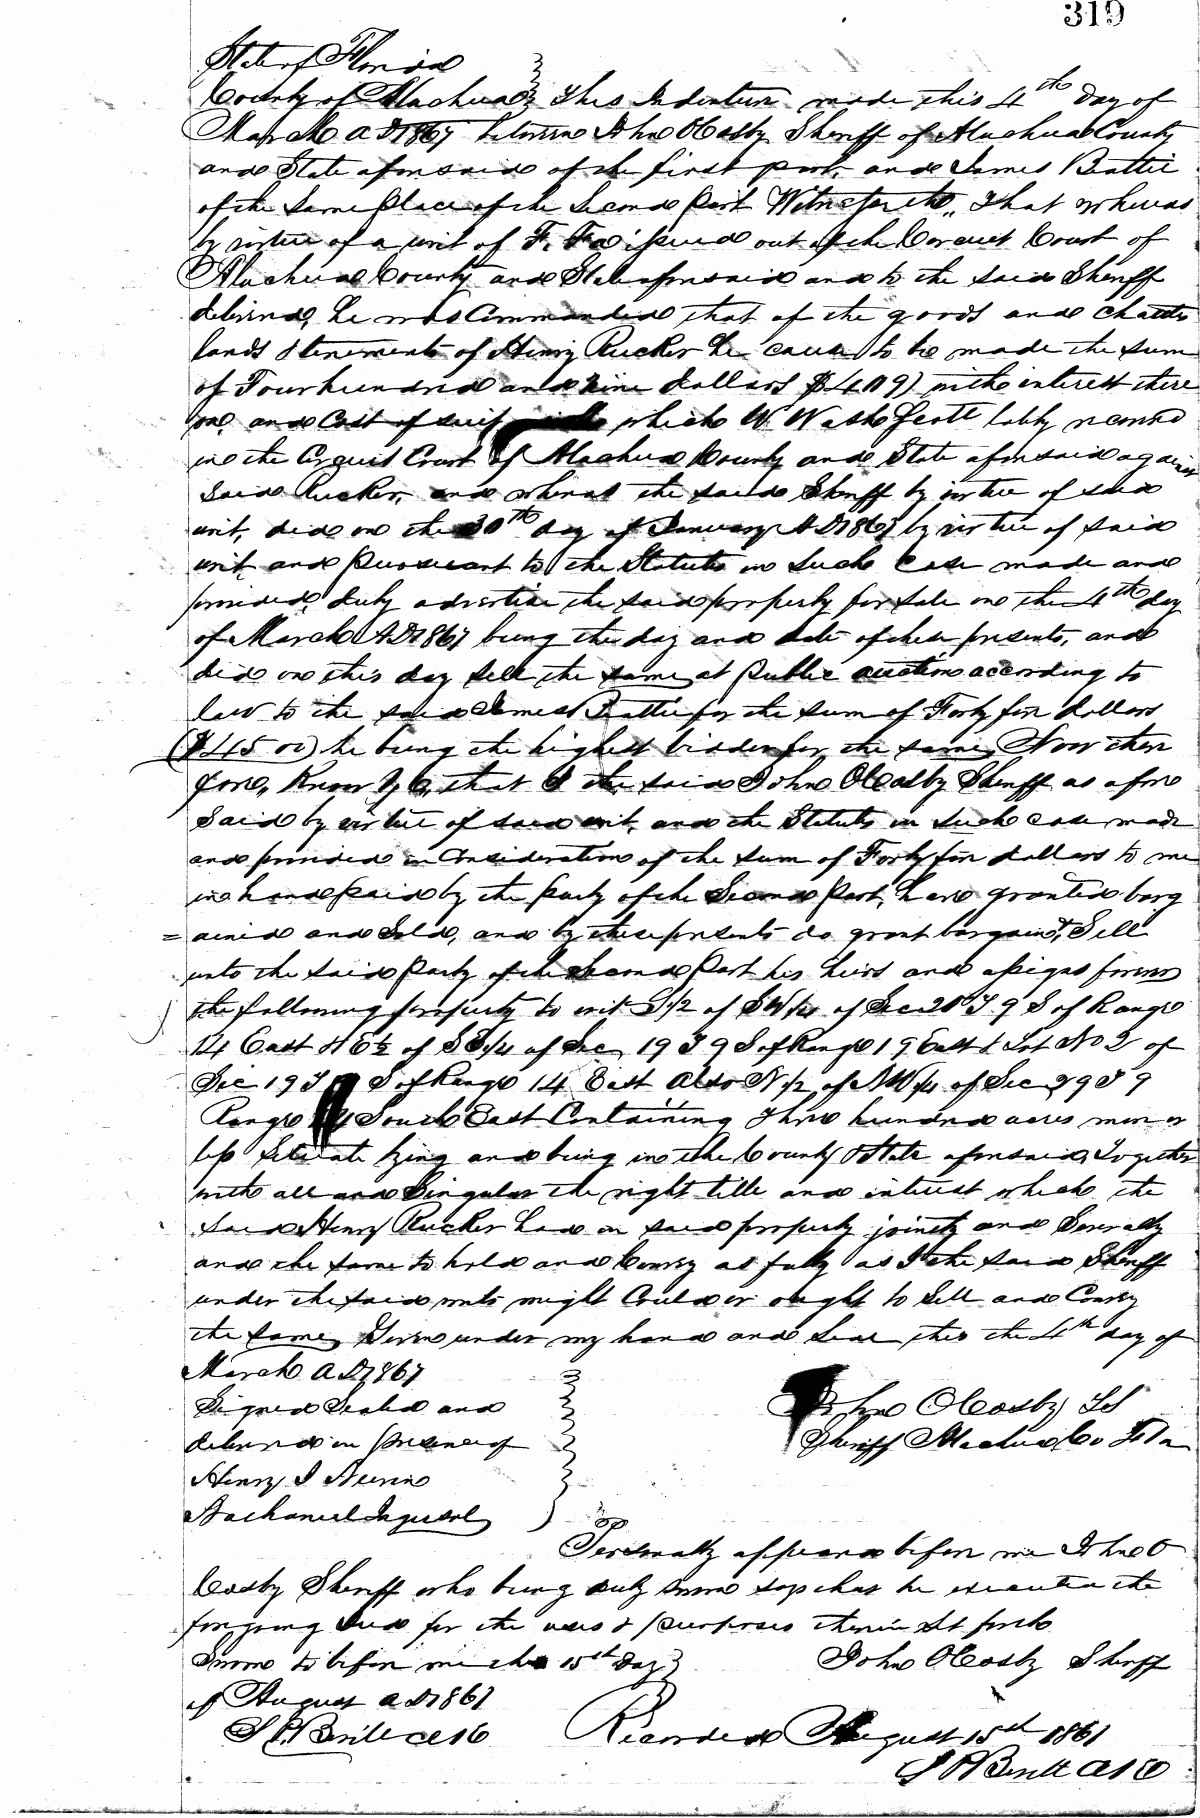 319
State of Florida
County of Alachua } This Indenture made this 4th day of
March A D 1861 between John O Cosby Sheriff of Alachua County
and State aforesaid of the first part, and James Beattie
of the Same place of the Second Part Witnesseth, That whereas
by virtue of a writ of F. Fa issued out of the Circuit Court of
Alachua County and State aforesaid and to the said Sheriff
delivered, he was Commanded that of the goods and chattels
lands & tenements of Henry Rucker he cause to be made the sum
of Four hundred and nine dollars $409) with interest there
on, and Cost of suit which W W lately recovered
in the Circuit Court of Alachua County and State aforesaid against
Said Rucker, and whereas the said Sheriff by virtue of said
writ, did on the 30th day of January A D 1861 by virtue of said
writ and Pursuant to the Statute in Such Case made and
provided, duly advertise the said property for sale on the 4th day
of March A D 1861 being the day and date of these presents, and
did on this day sell the same at public auction according to
law to the said James Beattie for the sum of Forty five dollars
($45 00) he being the highest bidder for the same, Now there
fore, Know Ye, that I the said John O Cosby Sheriff as afore
Said by virtue of said writ, and the Statute in such case made
and provided in Consideration of the sum of Forty five dollars to me
in hand paid by the Party of the Second Part, have granted barg
= ained and Sold, and by these presents do grant bargain & Sell
unto the said Party of the Second Part his heirs and assigns forever
the following property to wit S 1/2 of SW 1/4 of Sec 20 T 9 S of Range
14 East & E 1/2 of SE 1/4 of Sec 19 T 9 S of Range 19 East & Lot No 2 of
Sec 19 T S of Range 14 East Also N 1/2 of NW 1/4 of Sec 29 T 9
Range 14 South East Containing Three hundred acres more or
less Situate lying and being in the County & State aforesaid, Together
with all and Singular the right title and interest which the
said Henry Rucker had in said property jointly and Severally
and the same to hold and Convey as fully as I the said Sheriff
under the said writs might Could or ought to Sell and Convey
the same, Given under my hand and Seal this the 4th day of
March A D 1861
Signed Sealed and
delivered in presence of
Henry I
Nathaniel
John O Cosby LS
Sheriff Alachua Co Fla
Personally appeared before me John O
Cosby Sheriff who being duly sworn says that he executed the
foregoing deed for the uses & purposes therein set forth
Sworn to before me this 15th Day }
of August A D 1861
John O Cosby Sheriff
Recorded August 15th 1861